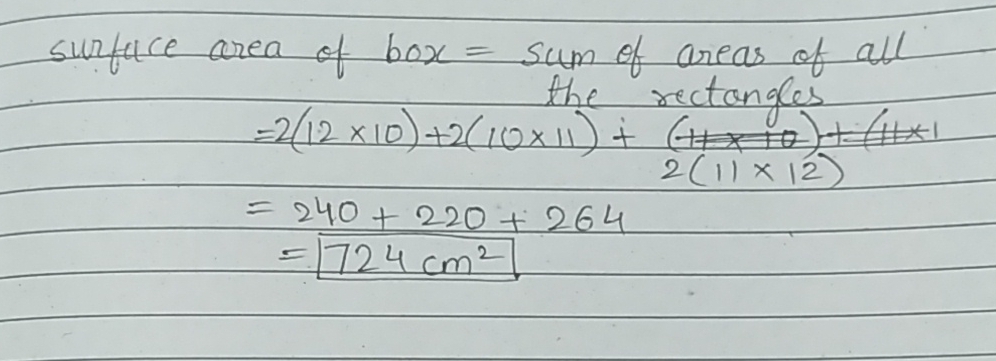 surface area of box = sum of areas of all
the rectangles
=2(12 ×10)+2(10×11) + (11 × 10)+(11×1
2(11 × 12)
= 240 + 220 + 264
= 724 cm²